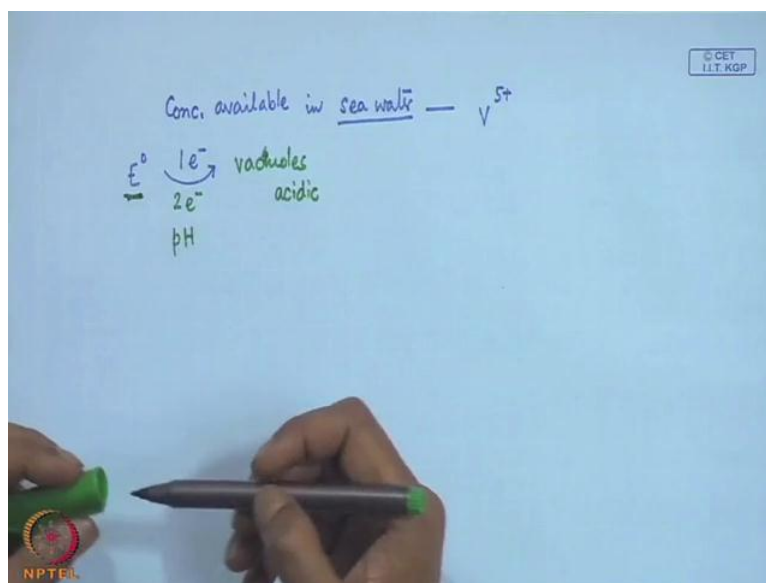 © CET
I.I.T. KGP
Conc. available in sea water — V⁵⁺
E⁰ 1e⁻ vacuoles
2e⁻ acidic
pH
NPTEL